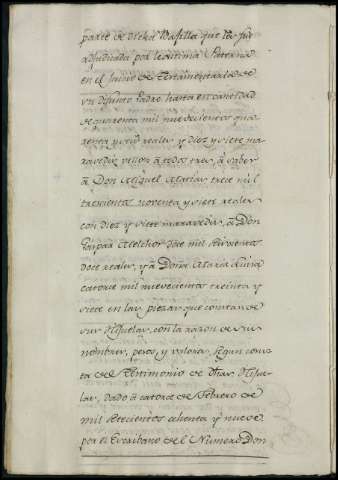 parte de dicha Baxilla que les fue
adjudicada por lexitima Paterna
en el Juicio de Testamentaria de
un difunto Padre hasta en cantidad
de quarenta mil nuevecientos qua
renta y seis reales y diez y siete ma
ravedis vellon a todos tres, a saber
a Don Miguel Matias trece mil
trescientos noventa y siete reales
con diez y siete maravedis, a Don
Gaspar Melchor doce mil seiscientos
doce reales, y a Doña Maria
catorce mil nuevecientos treinta y
siete en las piezas que constan de
sus Hijuelas, con la razon de sus
nombres, pesos, y valores, segun cons
ta del Testimonio de dhas. Hijue
las, dado a catorce de Febrero de
mil setecientos ochenta y nueve
por el Escribano del Numero Don